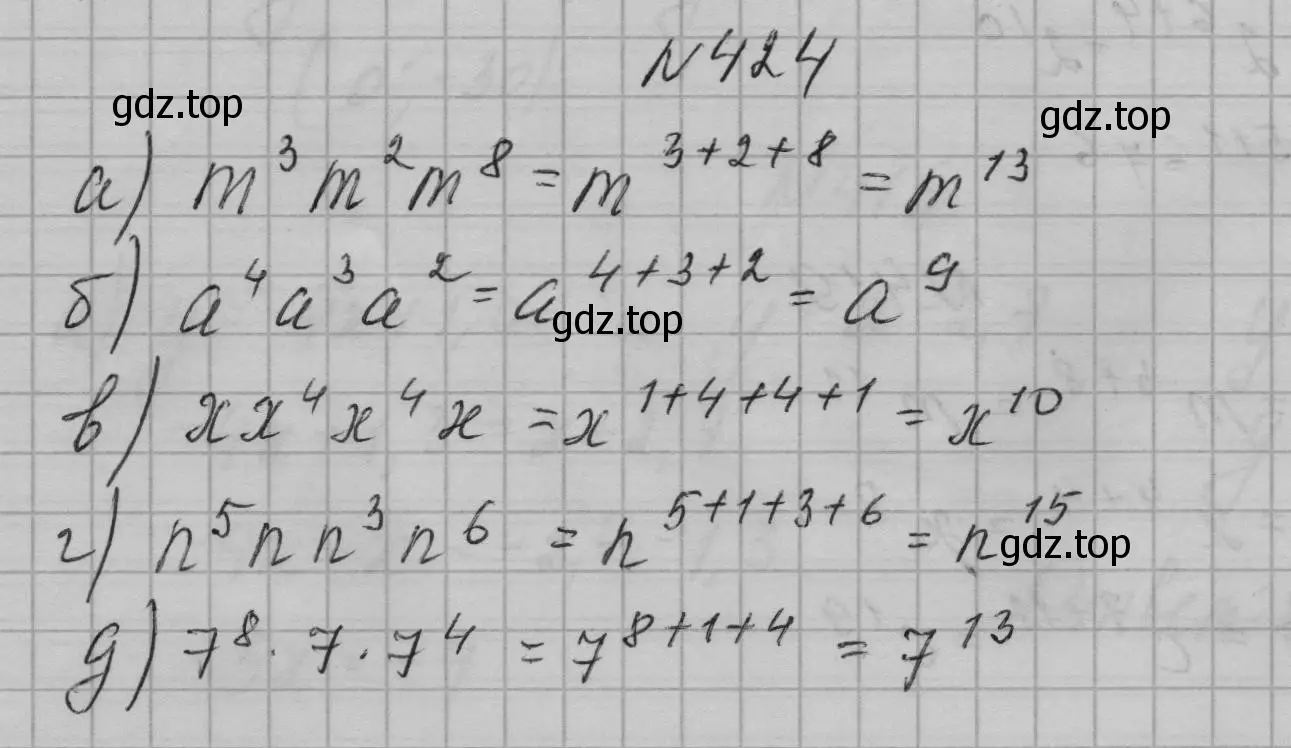 N 424
gdz.top gdz.top
а) m³ m² m⁸ = m³⁺²⁺⁸ = m¹³
б) a⁴ a³ a² = a⁴⁺³⁺² = a⁹
gdz.top
в) x x⁴ x⁴ x = x¹⁺⁴⁺⁴⁺¹ = x¹⁰
г) n⁵ n n³ n⁶ = n⁵⁺¹⁺³⁺⁶ = n¹⁵
gdz.top
д) 7⁸ · 7 · 7⁴ = 7⁸⁺¹⁺⁴ = 7¹³